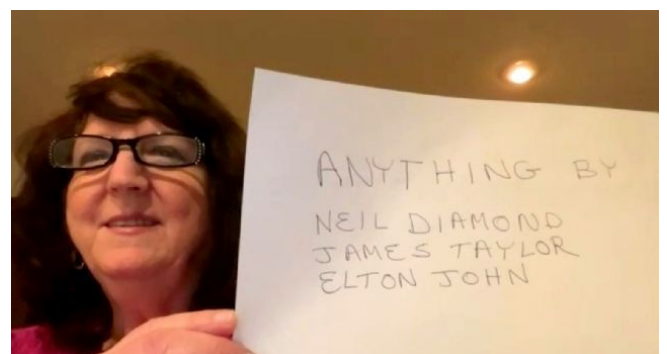 ANYTHING BY
NEIL DIAMOND
JAMES TAYLOR
ELTON JOHN